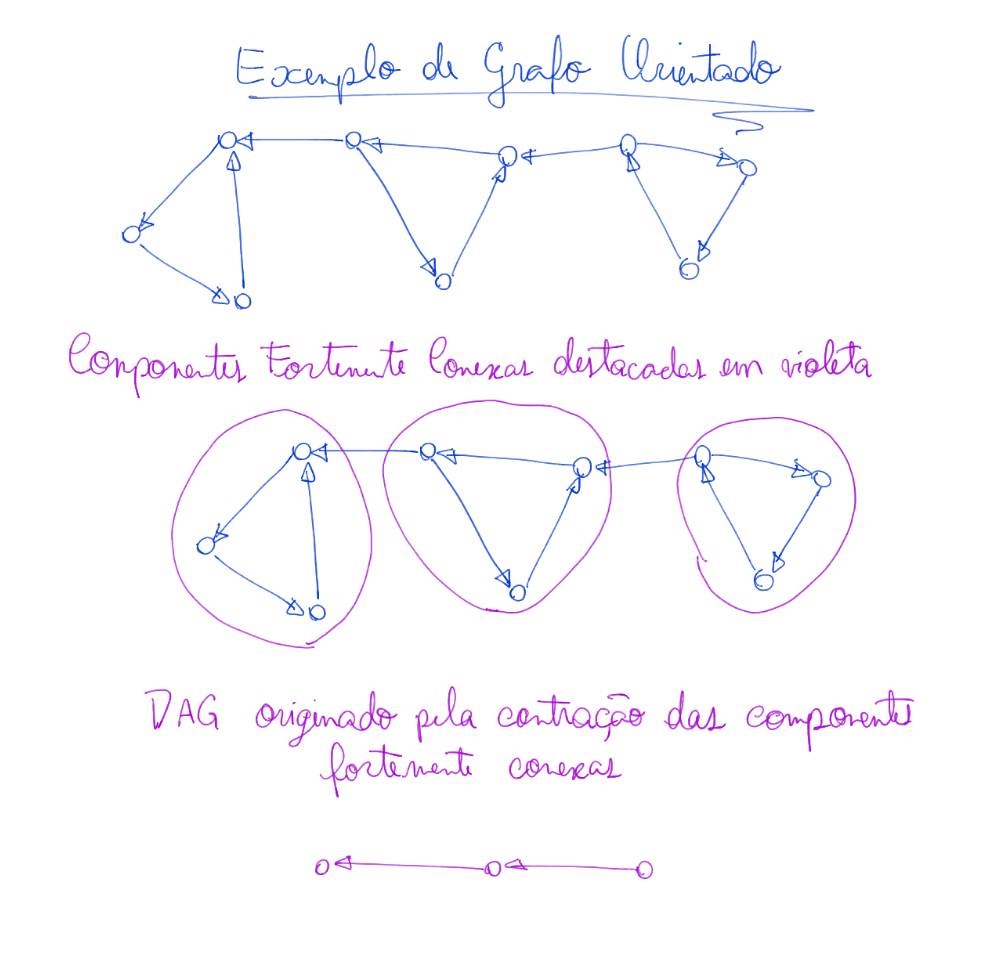 Exemplo de Grafo Orientado
Componentes Fortemente Conexas destacadas em violeta
DAG originado pela contração das componentes
fortemente conexas